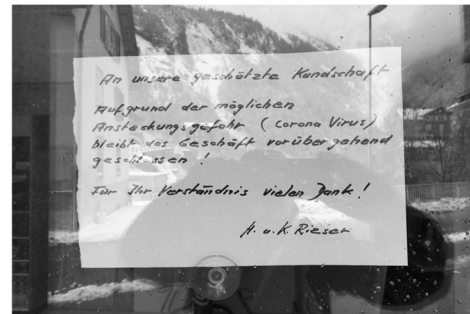 An unsere geschätzte Kundschaft
Aufgrund der möglichen
Ansteckungsgefahr (Corona Virus)
bleibt das Geschäft vorübergehend
geschlossen !
Für Ihr Verständnis vielen Dank !
H. u. K. Rieser